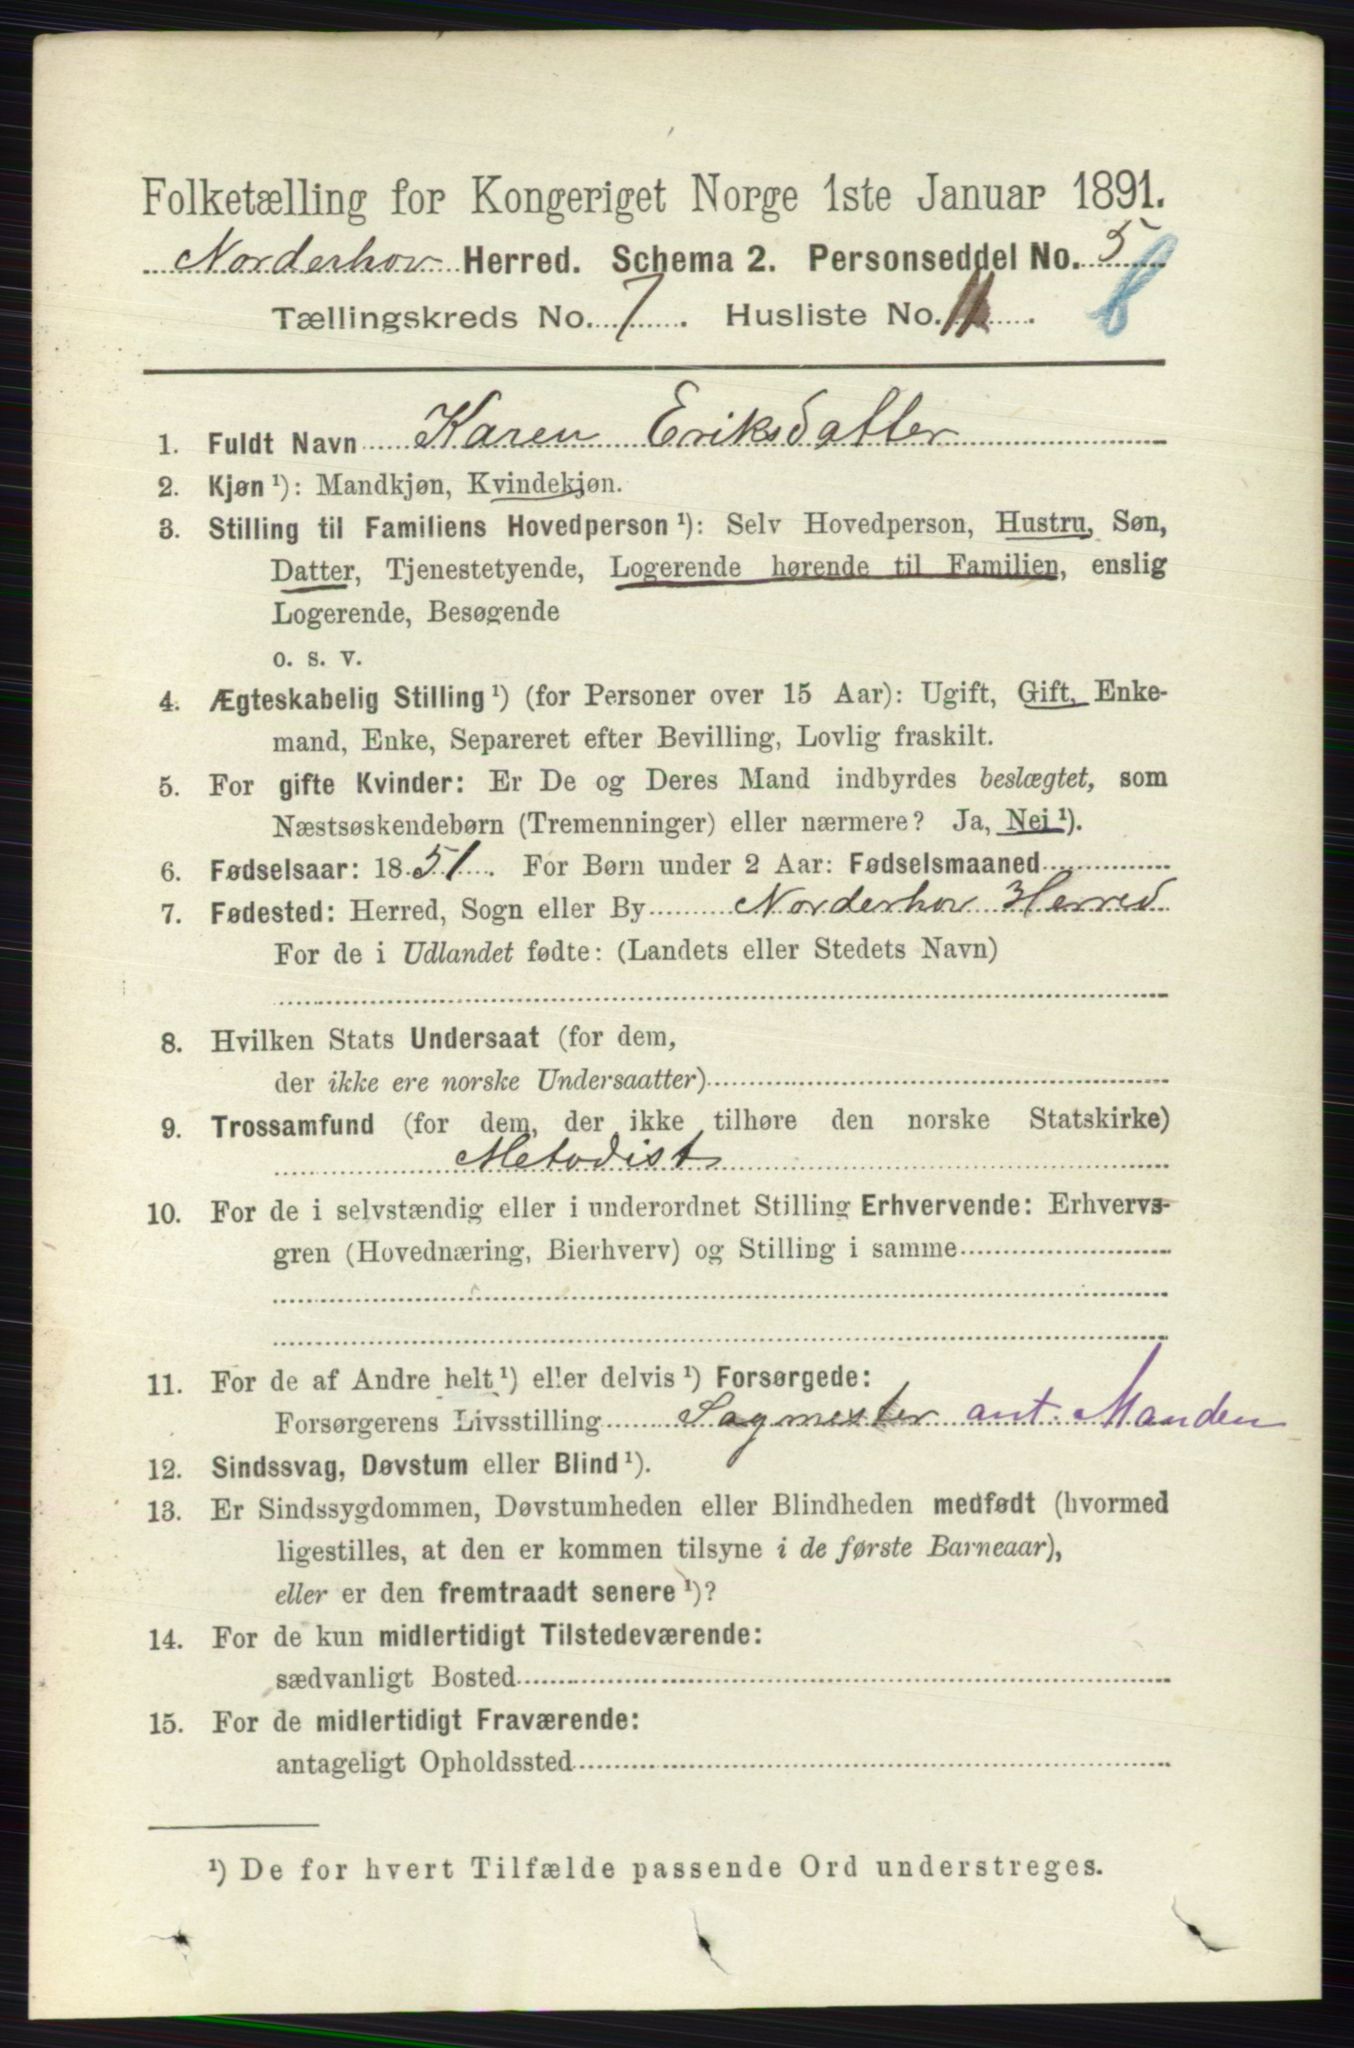 Folketælling for Kongeriget Norge 1ste Januar 1891.
Norderhov Herred. Schema 2. Personseddel No. 5
8
Tællingskreds No. 7. Husliste No. 11.
1. Fuldt Navn Karen Eriksdatter
2. Kjøn ¹): Mandkjøn, Kvindekjøn.
3. Stilling til Familiens Hovedperson ¹): Selv Hovedperson, Hustru, Søn,
Datter, Tjenestetyende, Logerende hørende til Familien, enslig
Logerende, Besøgende
o. s. v.
4. Ægteskabelig Stilling ¹) (for Personer over 15 Aar): Ugift, Gift, Enke-
mand, Enke, Separeret efter Bevilling, Lovlig fraskilt.
5. For gifte Kvinder: Er De og Deres Mand indbyrdes beslægtet, som
Næstsøskendebørn (Tremenninger) eller nærmere? Ja, Nei ¹).
6. Fødselsaar: 1851. For Børn under 2 Aar: Fødselsmaaned
7. Fødested: Herred, Sogn eller By Norderhov Herred
For de i Udlandet fødte: (Landets eller Stedets Navn)
8. Hvilken Stats Undersaat (for dem,
der ikke ere norske Undersaatter)
9. Trossamfund (for dem, der ikke tilhøre den norske Statskirke)
Metodist
10. For de i selvstændig eller i underordnet Stilling Erhvervende: Erhvervs-
gren (Hovednæring, Bierhverv) og Stilling i samme
11. For de af Andre helt ¹) eller delvis ¹) Forsørgede:
Forsørgerens Livsstilling Sagmester ant. Manden
12. Sindssvag, Døvstum eller Blind ¹).
13. Er Sindssygdommen, Døvstumheden eller Blindheden medfødt (hvormed
ligestilles, at den er kommen tilsyne i de første Barneaar),
eller er den fremtraadt senere ¹)?
14. For de kun midlertidigt Tilstedeværende:
sædvanligt Bosted
15. For de midlertidigt Fraværende:
antageligt Opholdssted
¹) De for hvert Tilfælde passende Ord understreges.